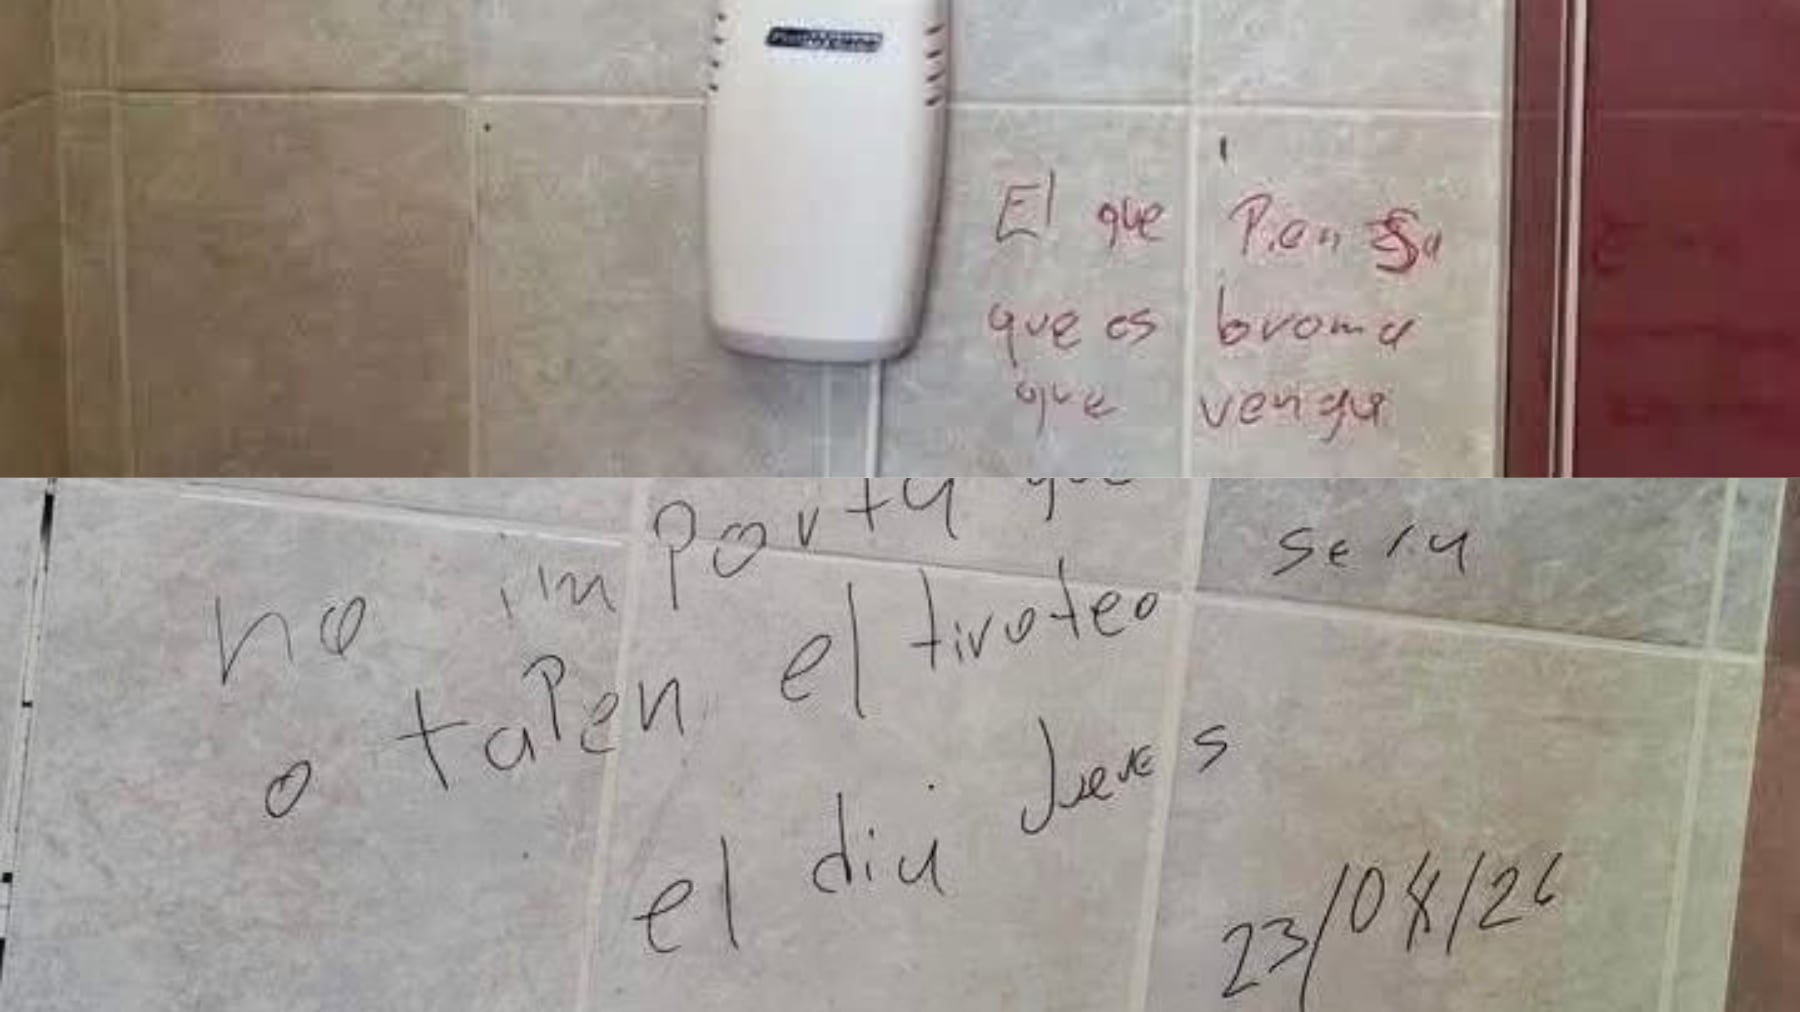 El que Piensa
que es broma
que venga
no importa que
o tapen el tiroteo sera
el dia Jueves
23/04/26